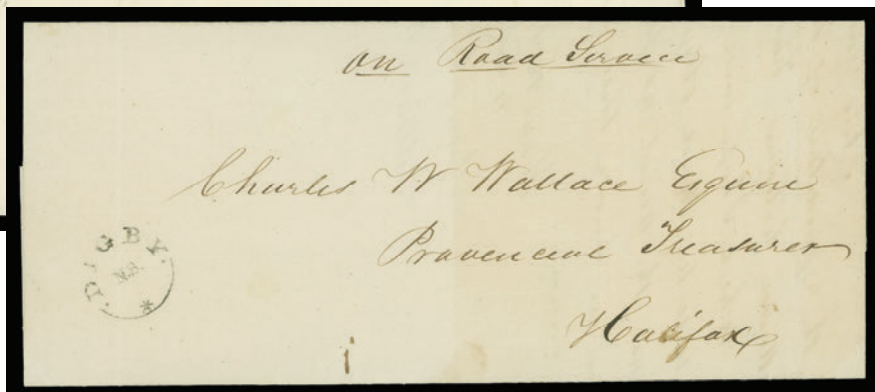 on Road Service
Charles W Wallace Esquire
Provencial Treasurer
Halifax
DIGBY.
N.S.